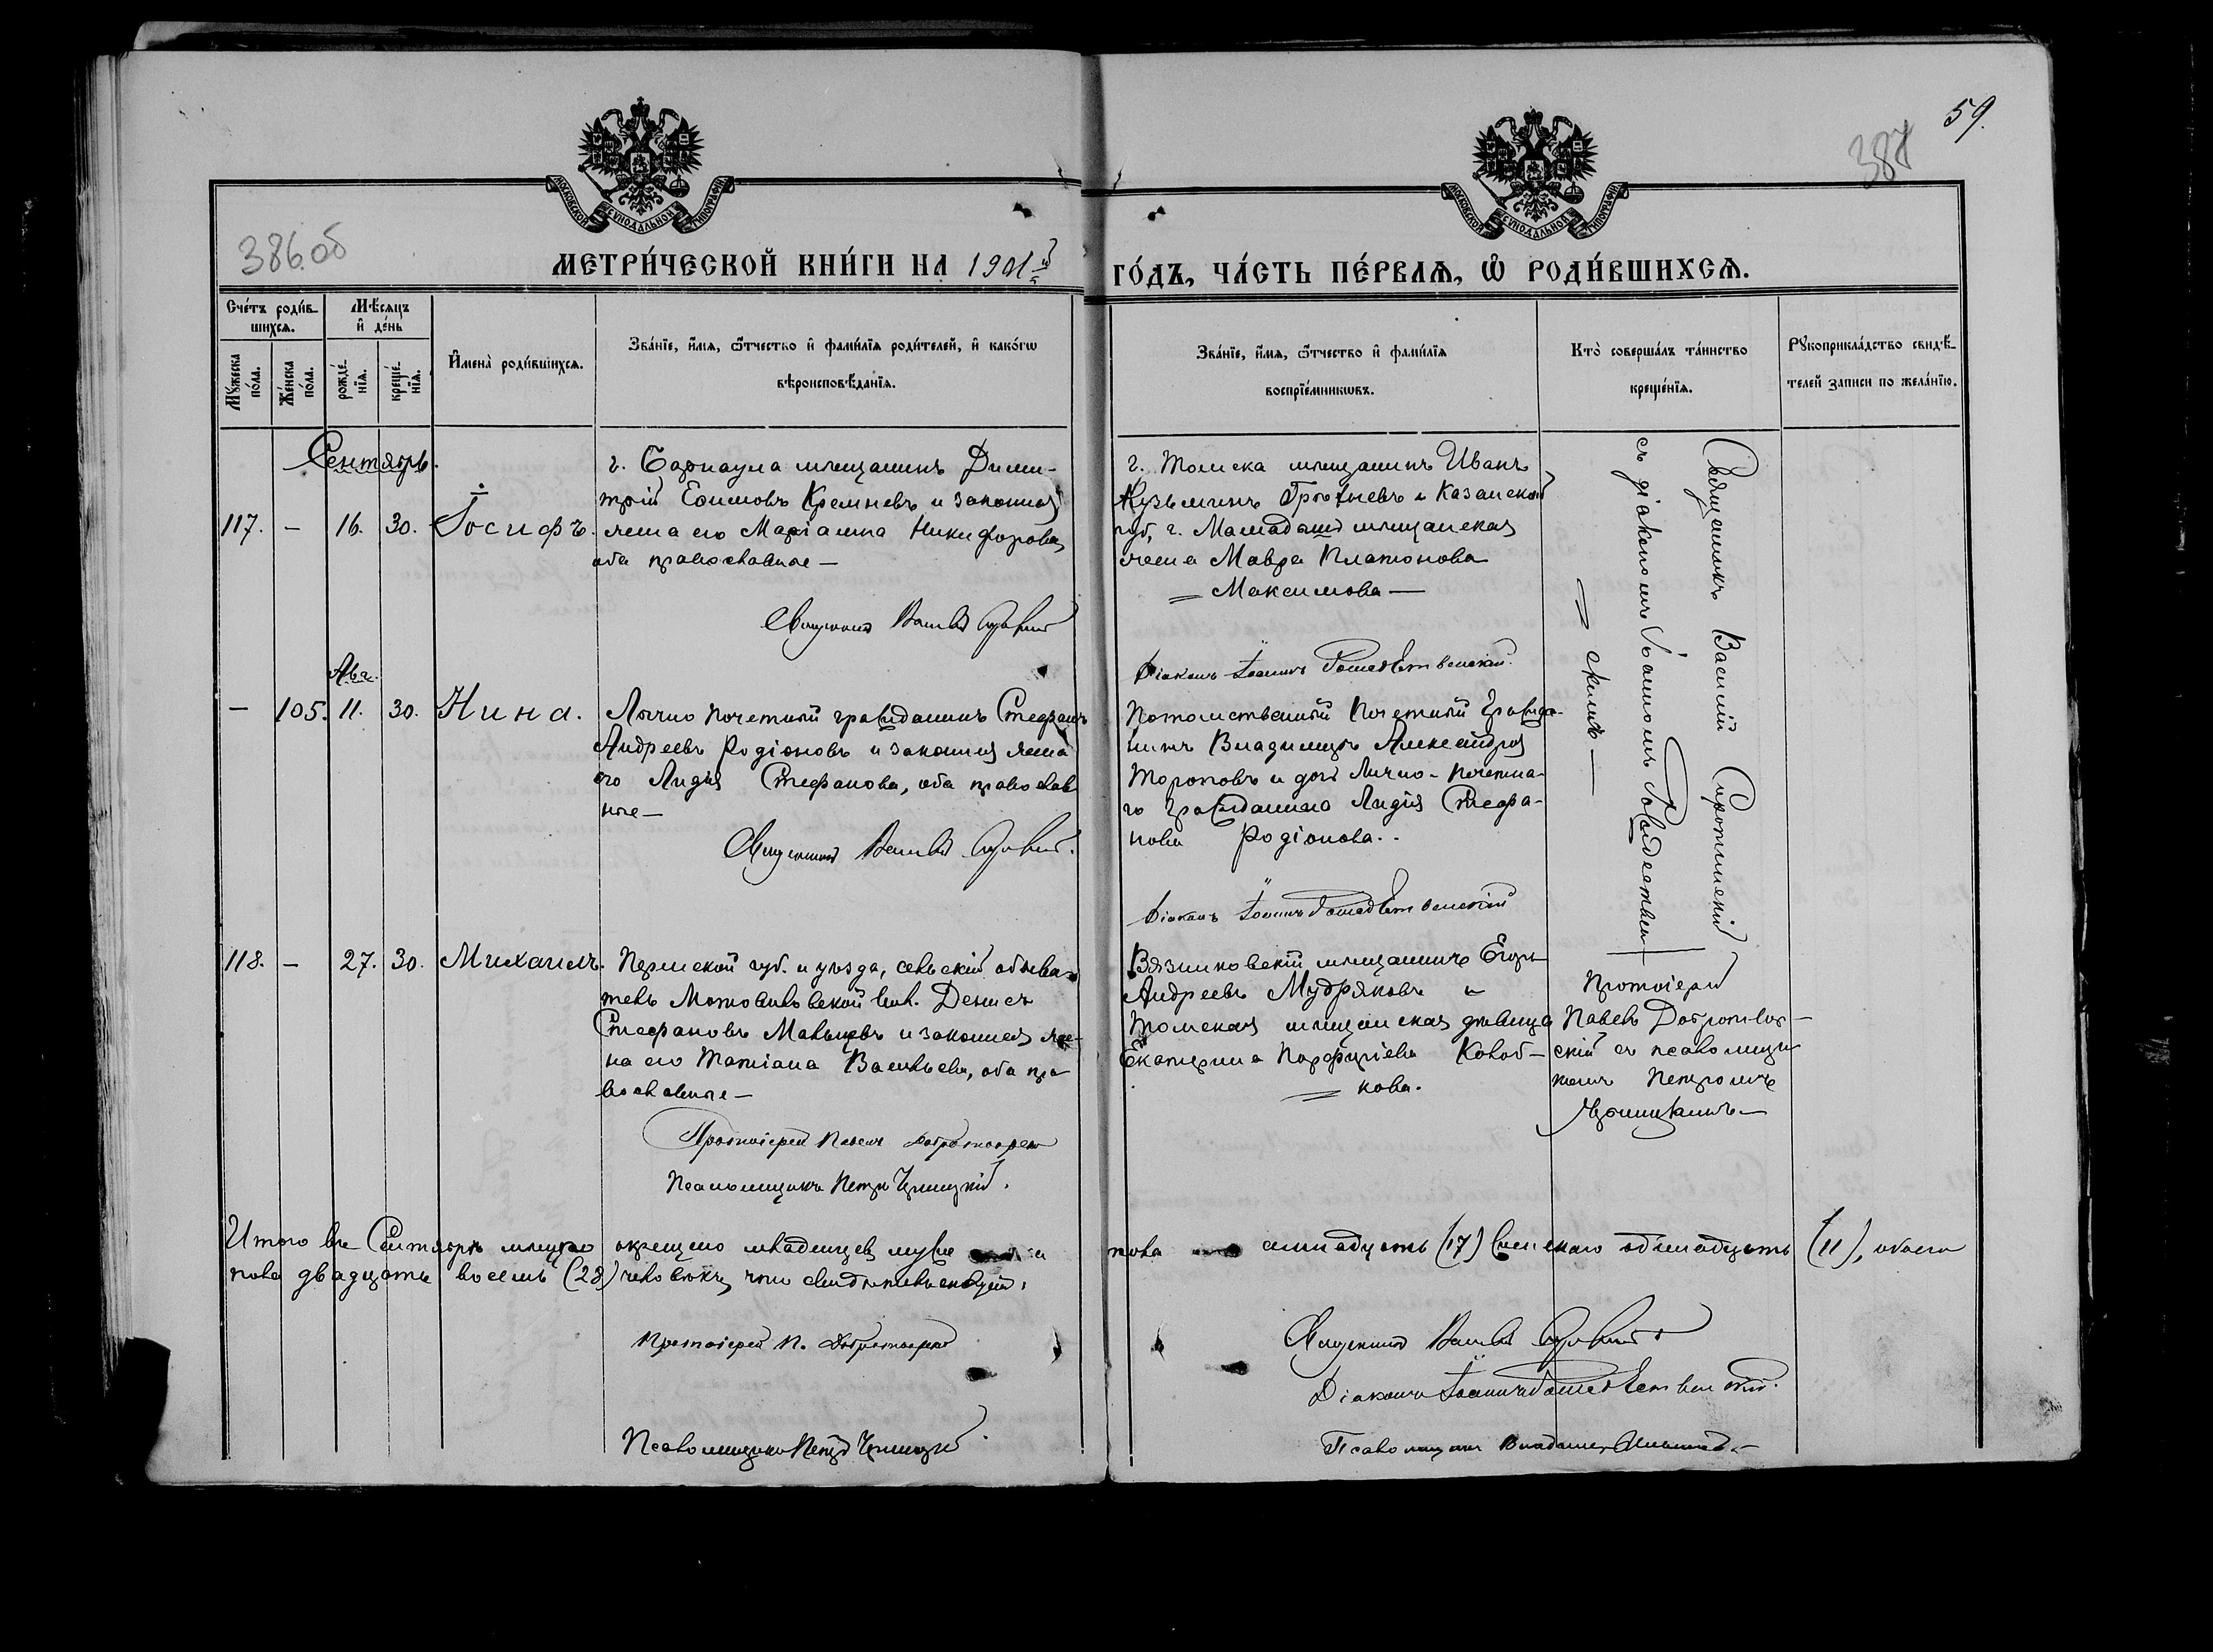 59.
387
386 об
МОСКОВСКОЙ СѴНОДАЛЬНОЙ ТИПОГРАФІИ
МОСКОВСКОЙ СѴНОДАЛЬНОЙ ТИПОГРАФІИ
МЕТРИ́ЧЕСКОЙ КНИ́ГИ НА 1901й ГО́ДЪ, ЧА́СТЬ ПЕ́РВАѦ, Ѡ҆ РОДИ́ВШИХСѦ.
Сче́тъ роди́в-
шихсѧ.
Мꙋ́жеска по́ла.
Же́нска по́ла.
Мѣ́сѧцъ
и҆ де́нь
рожде́-нїѧ.
креще́-нїѧ.
И҆мена̀ роди́вшихсѧ.
Зва́нїе, и҆́мѧ, ѻ҆́тчество и҆ фами́лїѧ роди́телей, и҆ како́гѡ
вѣроисповѣ́данїѧ.
Зва́нїе, и҆́мѧ, ѻ҆́тчество и҆ фами́лїѧ
воспрїе́мникѡвъ.
Кто̀ соверша́лъ та́инство
креще́нїѧ.
Рꙋкоприкла́дство свидѣ́-
телей записи по жела́нїю.
Сентябрь.
117. – 16. 30. Іосифъ.
г. Барнаула мѣщанинъ Дими-
трій Ефимовъ Кремневъ и законная
жена его Маріанна Никифорова,
оба православные —
Священникъ Василій Сиротинскій
г. Томска мѣщанинъ Иванъ
Кузьминъ и Казанской
губ., г. Мамадыша мѣщанская
жена Мавра Платонова
= Максимова —
Діаконъ Іоаннъ Рождественскій.
Священникъ Василій Сиротинскій
съ діакономъ Іоанномъ Рождествен-
= скимъ —
Авг.
– 105. 11. 30. Нина.
Лично почетный гражданинъ Стефанъ
Андреевъ Родіоновъ и законная жена
его Лидія Стефанова, оба православ-
ные —
Священникъ Василій Сиротинскій.
Потомственный Почетный Гражда-
нинъ Владимиръ Александров
Тороповъ и дочь Лично-Почетна-
го Гражданина Лидія Стефа-
нова Родіонова.
Діаконъ Іоаннъ Рождественскій
118. – 27. 30. Михаилъ.
Пермской губ. и уѣзда, сельскій обыва-
тель Мотовиловской вол. Денисъ
Стефановъ Мальцевъ и законная же-
на его Татіана Васильева, оба пра-
вославные —
Протоіерей Павелъ Добротворскій
Псаломщикъ Петръ
Вязниковскій мѣщанинъ Егоръ
Андреевъ Мудряковъ и
Томская мѣщанская дѣвица
Екатерина Порфиріева Колоб-
= кова.
Протоіерей
Павелъ Добротвор-
скій съ псаломщи-
комъ Петромъ
Итого въ Сентябрѣ мѣсяцѣ окрещено младенцевъ мужескаго пола семнадцать (17) женскаго одиннадцать (11), обоего
пола двадцать восемь (28) человѣкъ, что свидѣтельствуемъ:
Протоіерей П. Добротворскій
Священникъ Василій Сиротинскій
Діаконъ Іоаннъ Рождественскій.
Псаломщикъ Петръ
Псаломщикъ Владимиръ